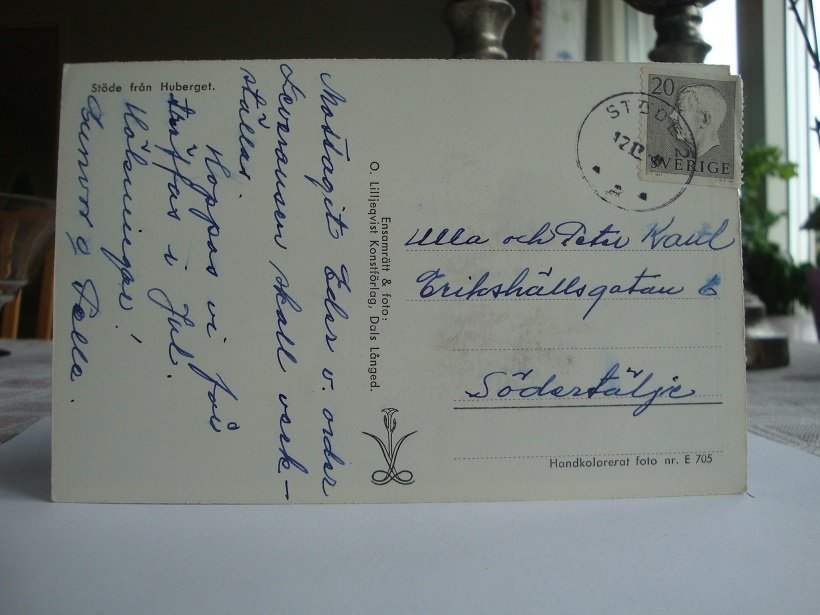 Stöde från Huberget.
Mottagit Eder v. order
Leveransen skall verk-
ställas.
Hoppas vi får
träffas i Jul.
Hälsningar!
Gunvor o Pelle.
Ensamrätt & foto:
O. Lilljeqvist Konstförlag, Dals Långed.
20
SVERIGE
STÖDE
12 12
Ulla och Peter
Erikshällsgatan 6
Södertälje
Handkolorerat foto nr. E 705